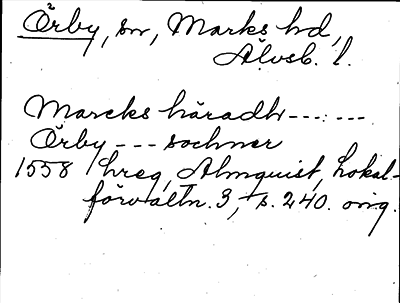 Örby, sn, Marks hd,
Älvsb. l.
Marcks häradh --- ---
Örby --- sochner
1558 hreg, Almquist, Lokal-
förvaltn. 3, s. 240. orig.